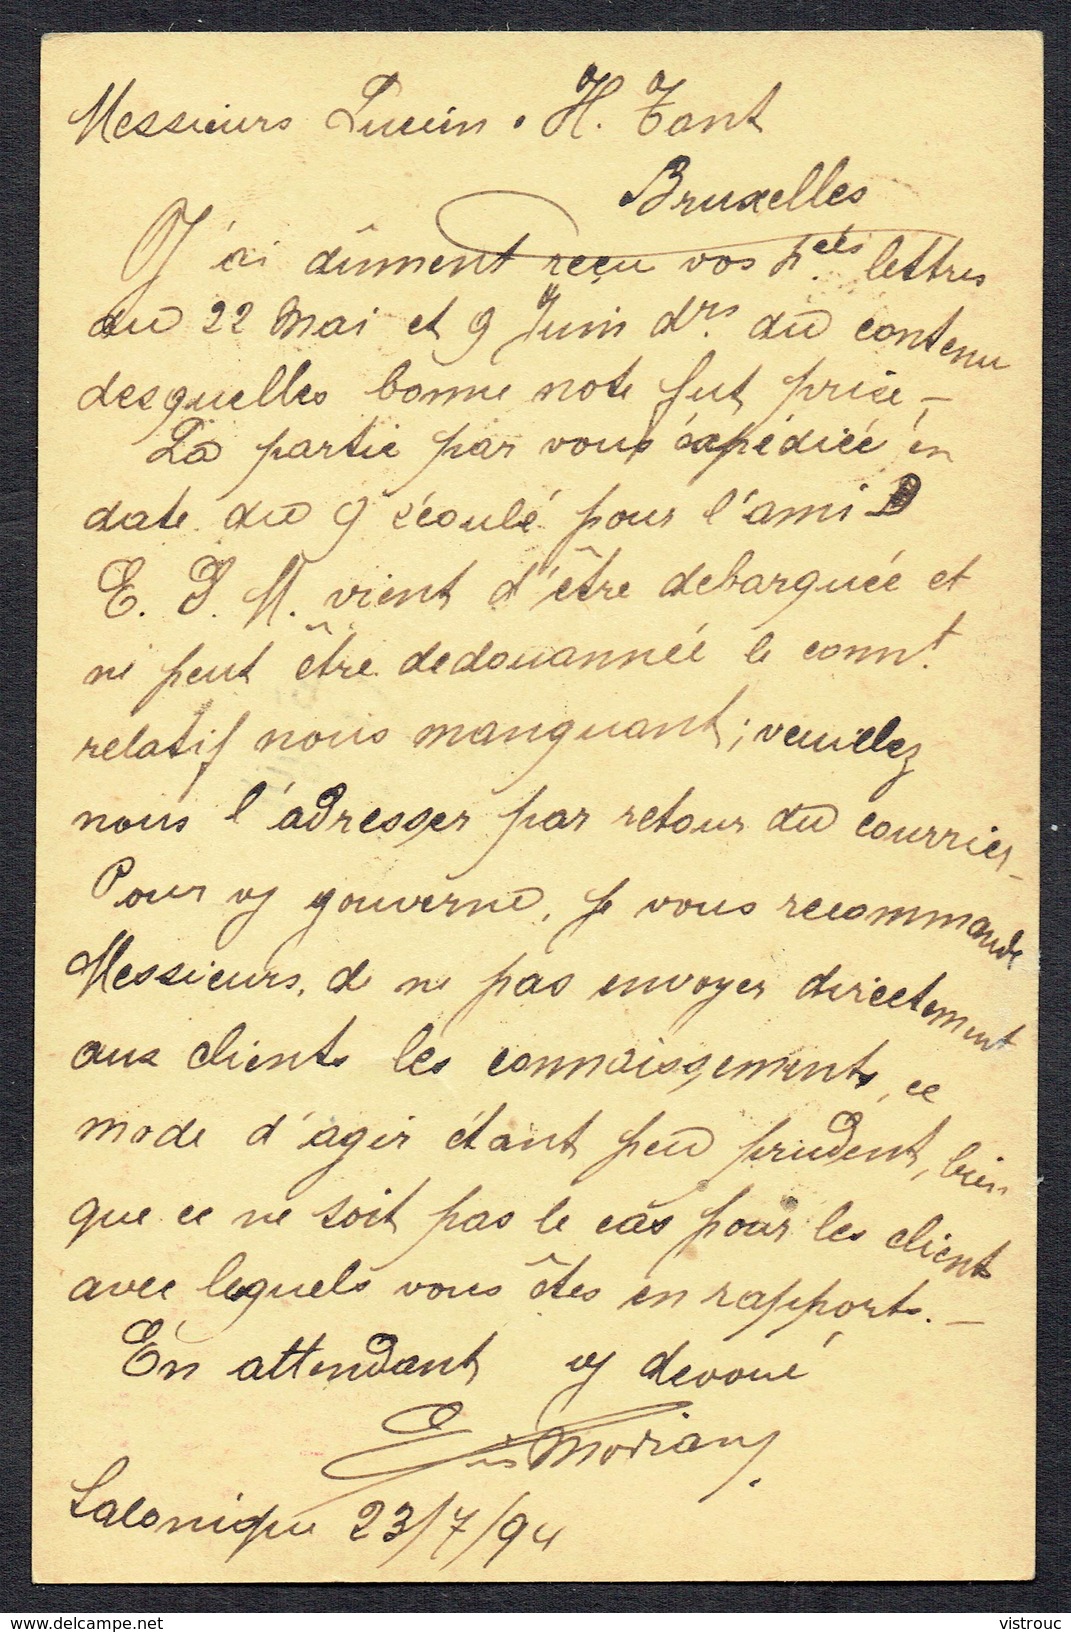 Messieurs Lucien. H. Tant
Bruxelles
J'ai dûment reçu vos h.els lettres
du 22 Mai et 9 Juin drs. du contenu
desquelles bonne note fut prise —
La partie par vous éxpédiée en
date du 9 écoulé pour l'ami
E. S. M. vient d'être debarquée et
ne peut être dedouannée le connt.
relatif nous manquant; veuillez
nous l'adresser par retour du courrier —
Pour vj gouverne, je vous recommande
Messieurs, de ne pas envoyer directement
aux clients les connaissements, ce
mode d'agir étant peu prudent, bien
que ce ne soit pas le cas pour les client
avec lequels vous êtes en rapports. —
En attendant vj devoué
Modiano
Salonique 23/7/94
vistrouc